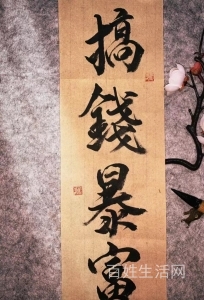 搞
錢
暴
富
百姓生活网